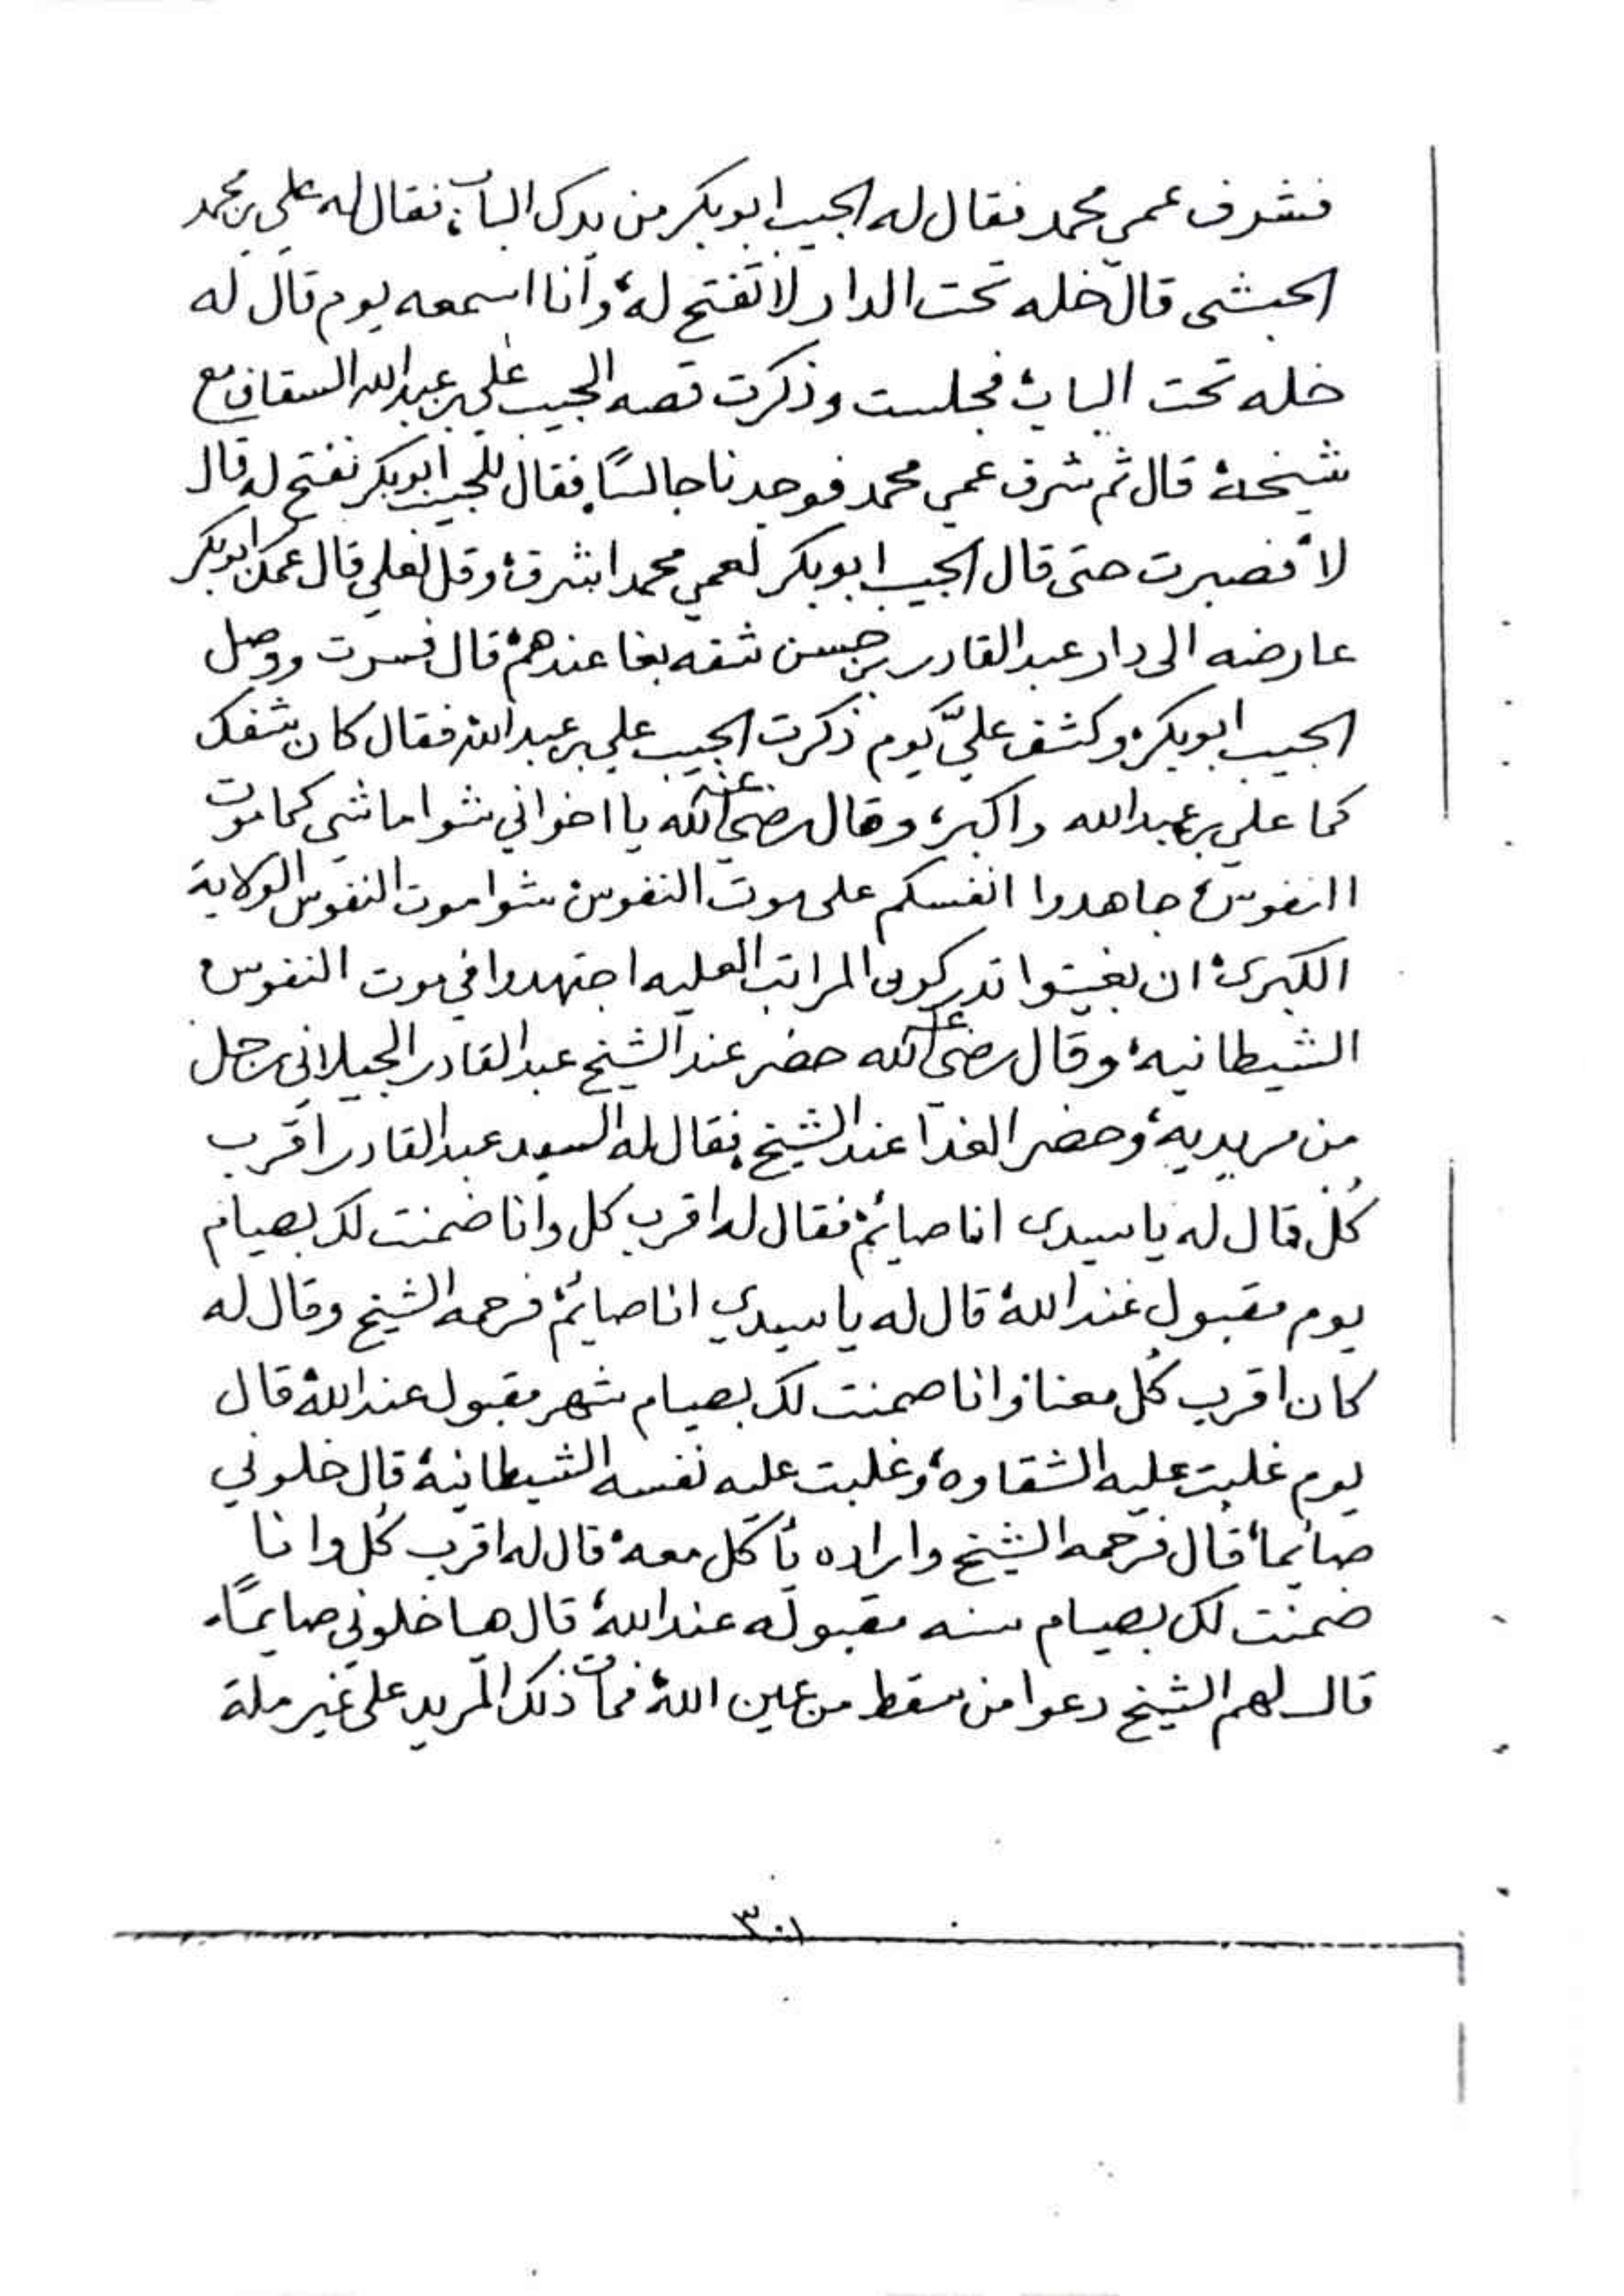 فشرف عمي محمد فقال له الحبيب ابوبكر من يدك الباب، فقال له علي بن محمد
الحبشي قال خله تحت الدار لا تفتح له، وأنا اسمعه يوم قال له
خله تحت الباب، فجلست وذكرت قصه الحبيب علي بن عبدالله السقاف مع
شيخه، قال ثم شرف عمي محمد فوجدنا جالسًا، فقال للحبيب ابوبكر نفتح له قال
لا، فصبرت حتى قال الحبيب ابوبكر لعمي محمد اشرف، وقل لعلي قال عمك ابوبكر
عارضه الى دار عبدالقادر بن حسن شفه بغا عندهم، قال فسرت ووصل
الحبيب ابوبكر، وكشف عليَّ يوم ذكرت الحبيب علي بن عبدالله، فقال كان شفك
كما علي بن عبدالله واكبر، وقال رضي الله عنه يا اخواني شوا ما شي كما موت
النفوس، جاهدوا انفسكم على موت النفوس، شوا موت النفوس الولاية
الكبرى، ان بغيتوا تدركون المراتب العليه اجتهدوا في موت النفوس
الشيطانيه، وقال رضي الله عنه حضر عند الشيخ عبدالقادر الجيلاني رجل
من مريديه، وحضر الغدا عند الشيخ، فقال له السيد عبدالقادر اقرب
كُلْ قال له يا سيدي انا صائم، فقال له اقرب كل وانا ضمنت لك بصيام
يوم مقبول عند الله، قال له يا سيدي انا صايم، فرحمه الشيخ وقال له
كان اقرب كُل معنا، وانا ضمنت لك بصيام شهر مقبول عند الله، قال
يوم غلبت عليه الشقاوه، وغلبت عليه نفسه الشيطانية، قال خلوني
صائماً، قال فرحمه الشيخ واراده يأكل معه، قال له اقرب كُل وانا
ضمنت لك بصيام سنه مقبوله عند الله، قال هيا خلوني صايمًا،
قال لهم الشيخ دعوا من سقط من عين الله، فمات ذلك المريد على غير ملة
٣٠١